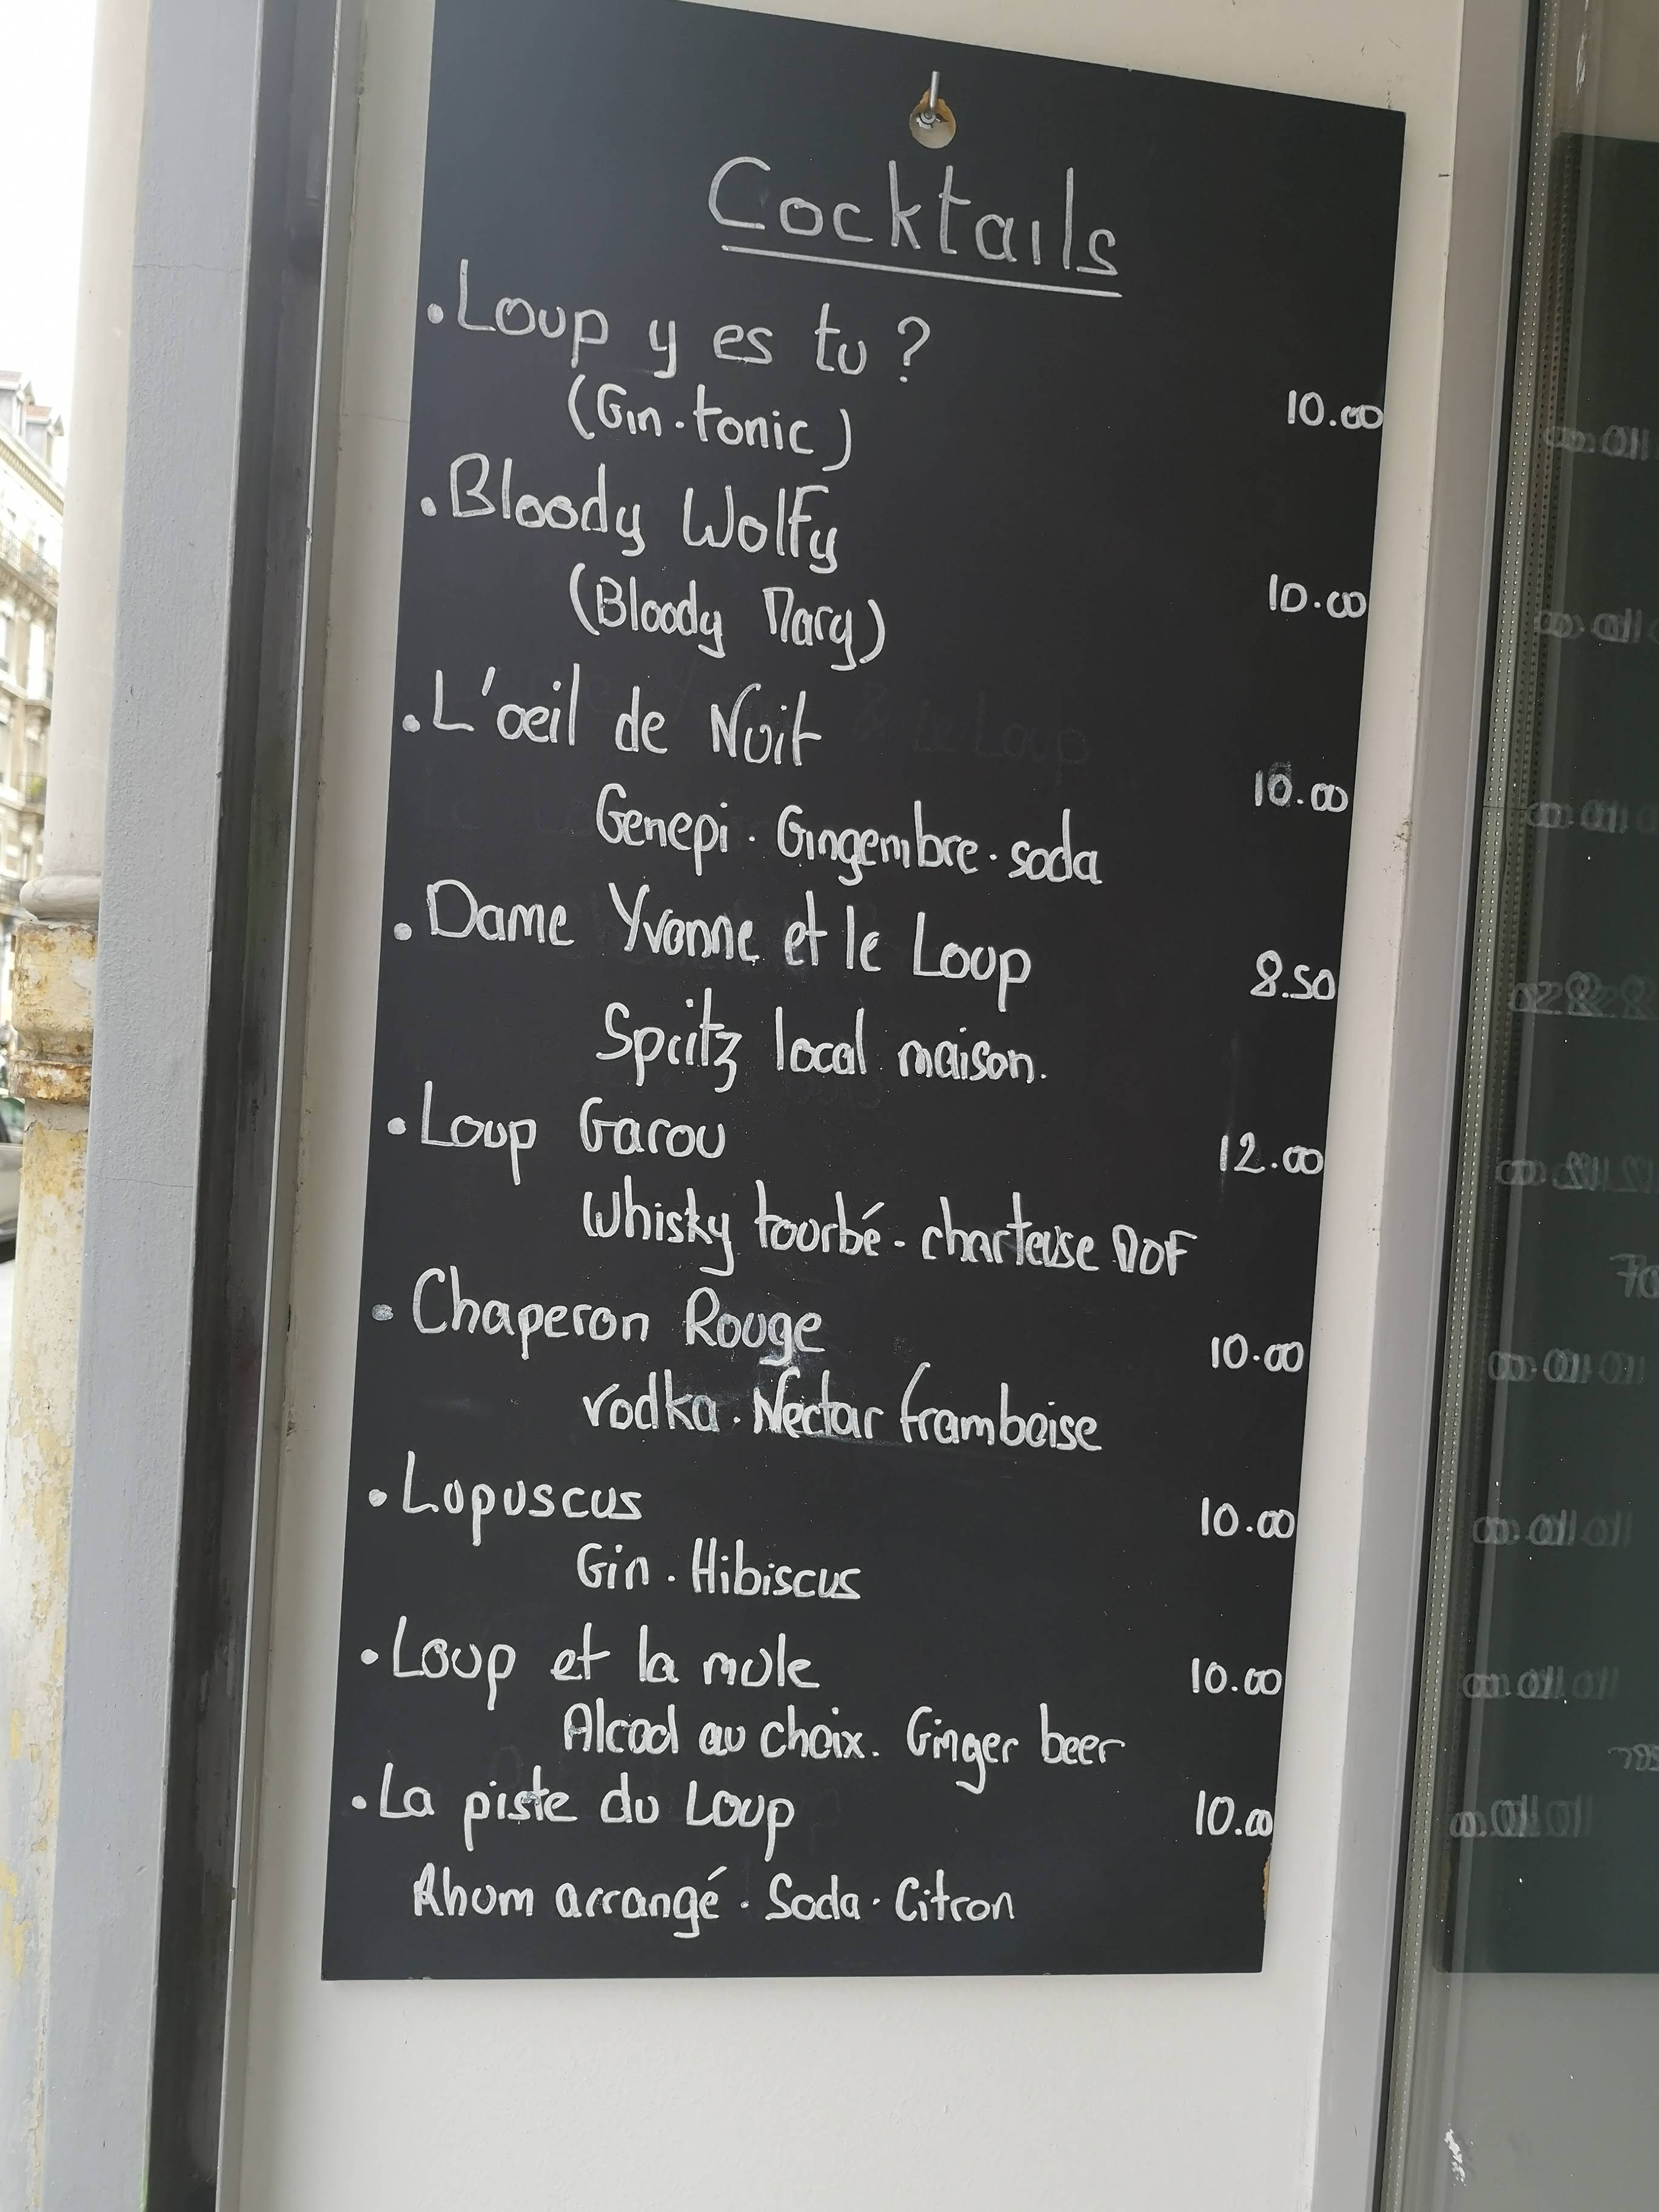 Cocktails
• Loup y es tu ?
(Gin. tonic) 10.00
• Bloody Wolfy
(Bloody Mary) 10.00
• L'œil de Nuit
10.00
Genepi. Gingembre. soda
• Dame Yvonne et le Loup 8.50
Spritz local maison.
• Loup Garou 12.00
Whisky tourbé - charteuse MOF
• Chaperon Rouge 10.00
vodka. Nectar framboise
• Lupuscus 10.00
Gin. Hibiscus
• Loup et la mule 10.00
Alcool au choix. Ginger beer
• La piste du Loup 10.00
Rhum arrangé. Soda. Citron